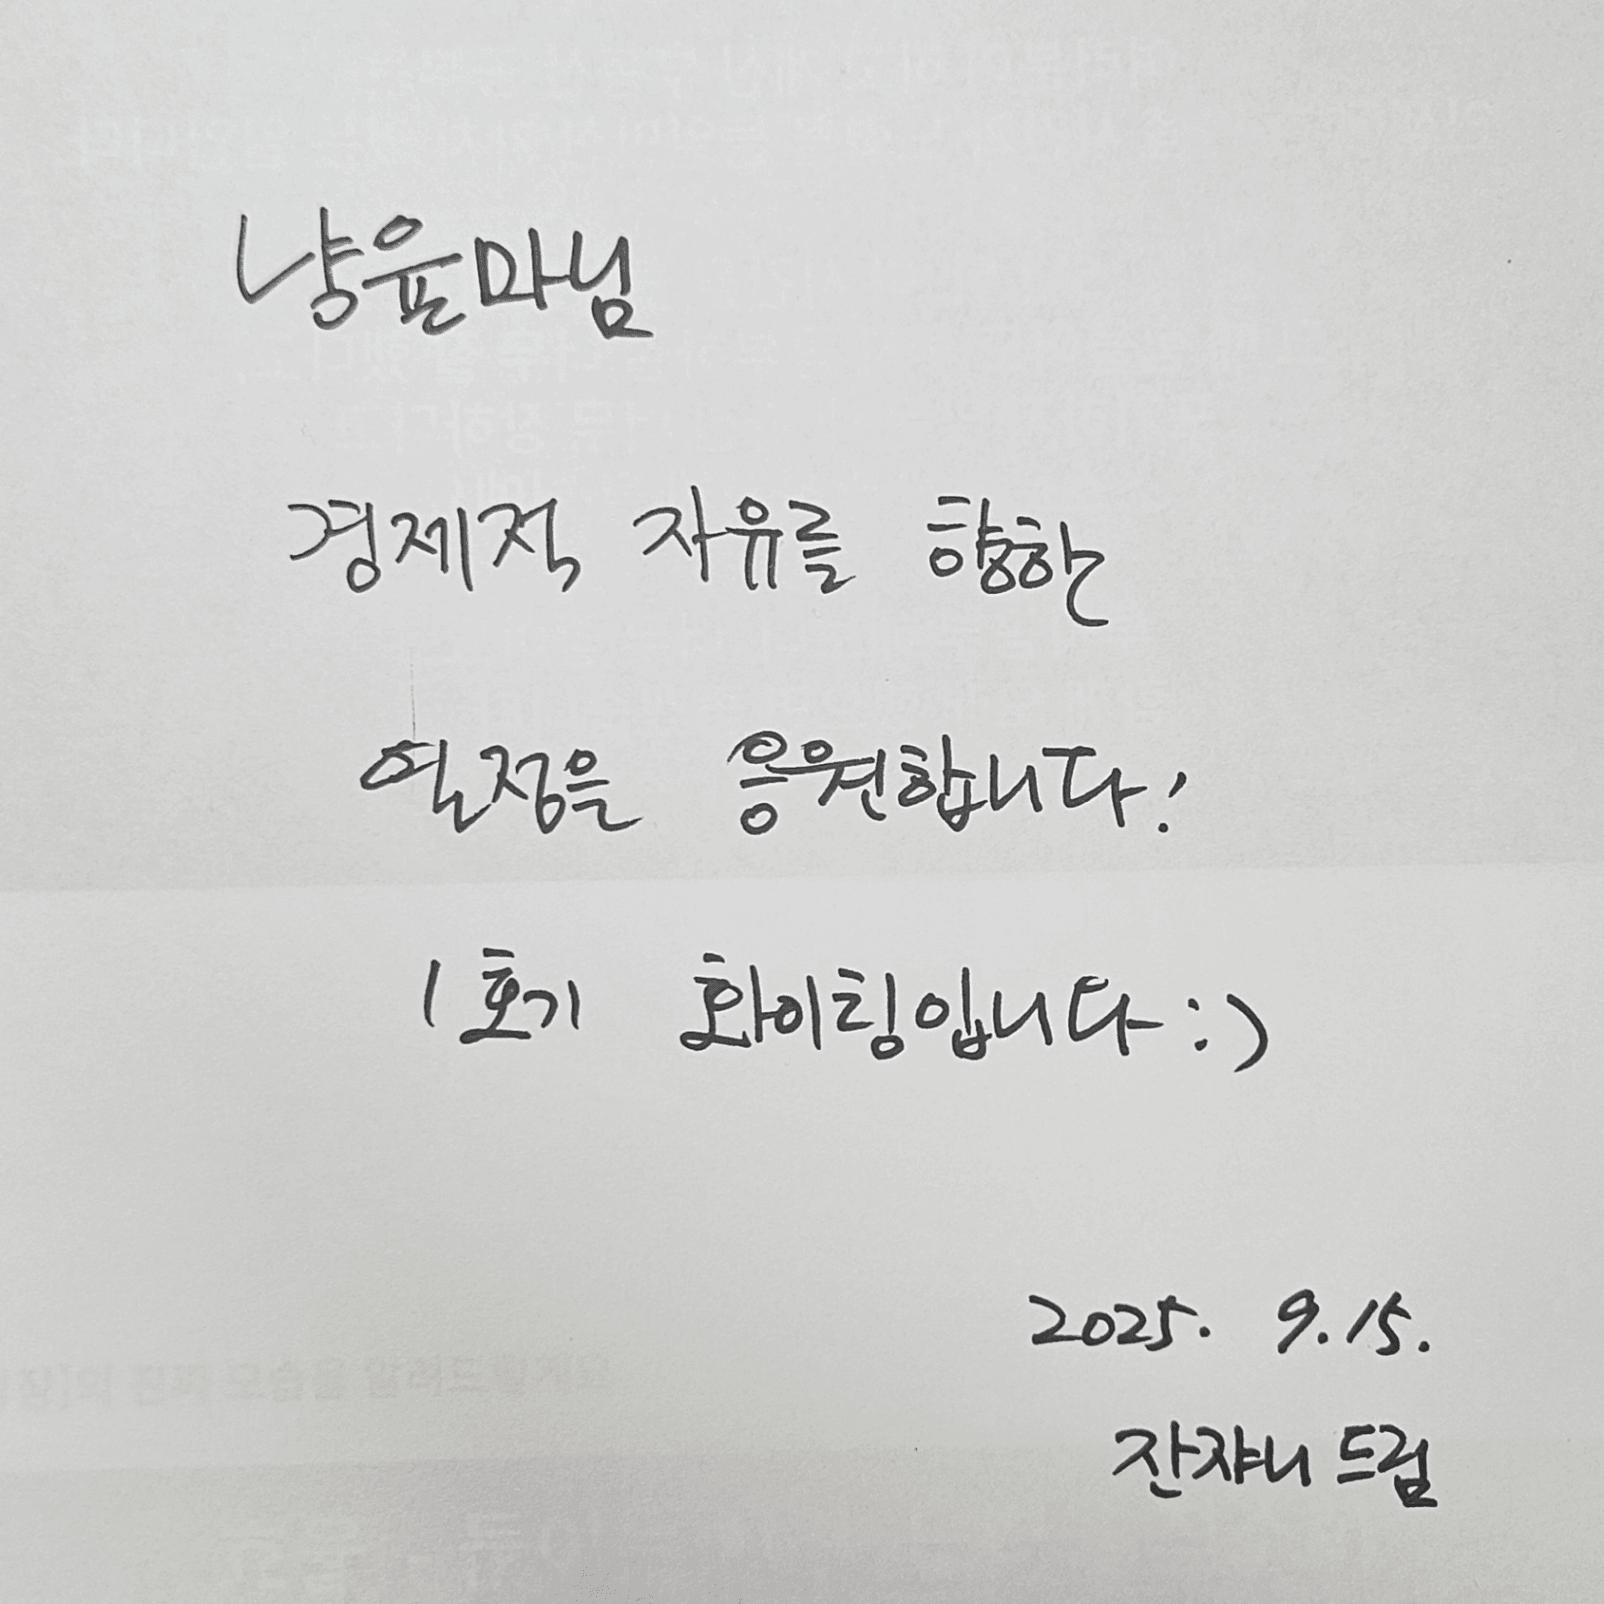 냥윤마님
경제적 자유를 향한
열정을 응원합니다!
1호기 화이팅입니다 :)
2025. 9. 15.
잔쟈니 드림